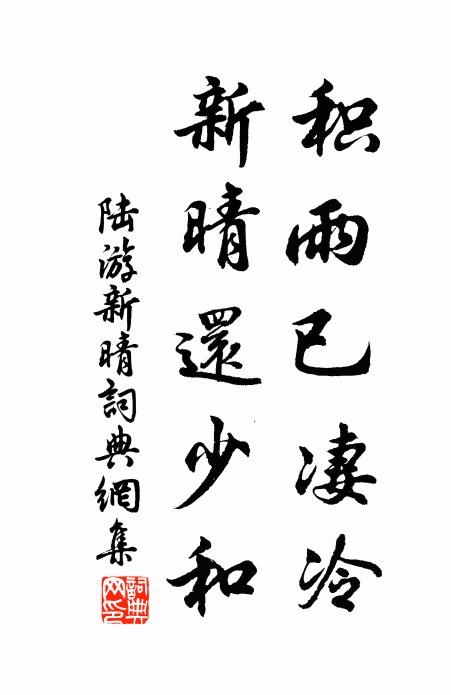 积雨已凄冷
新晴還少和
陆游新晴詞典網集
詞典網印